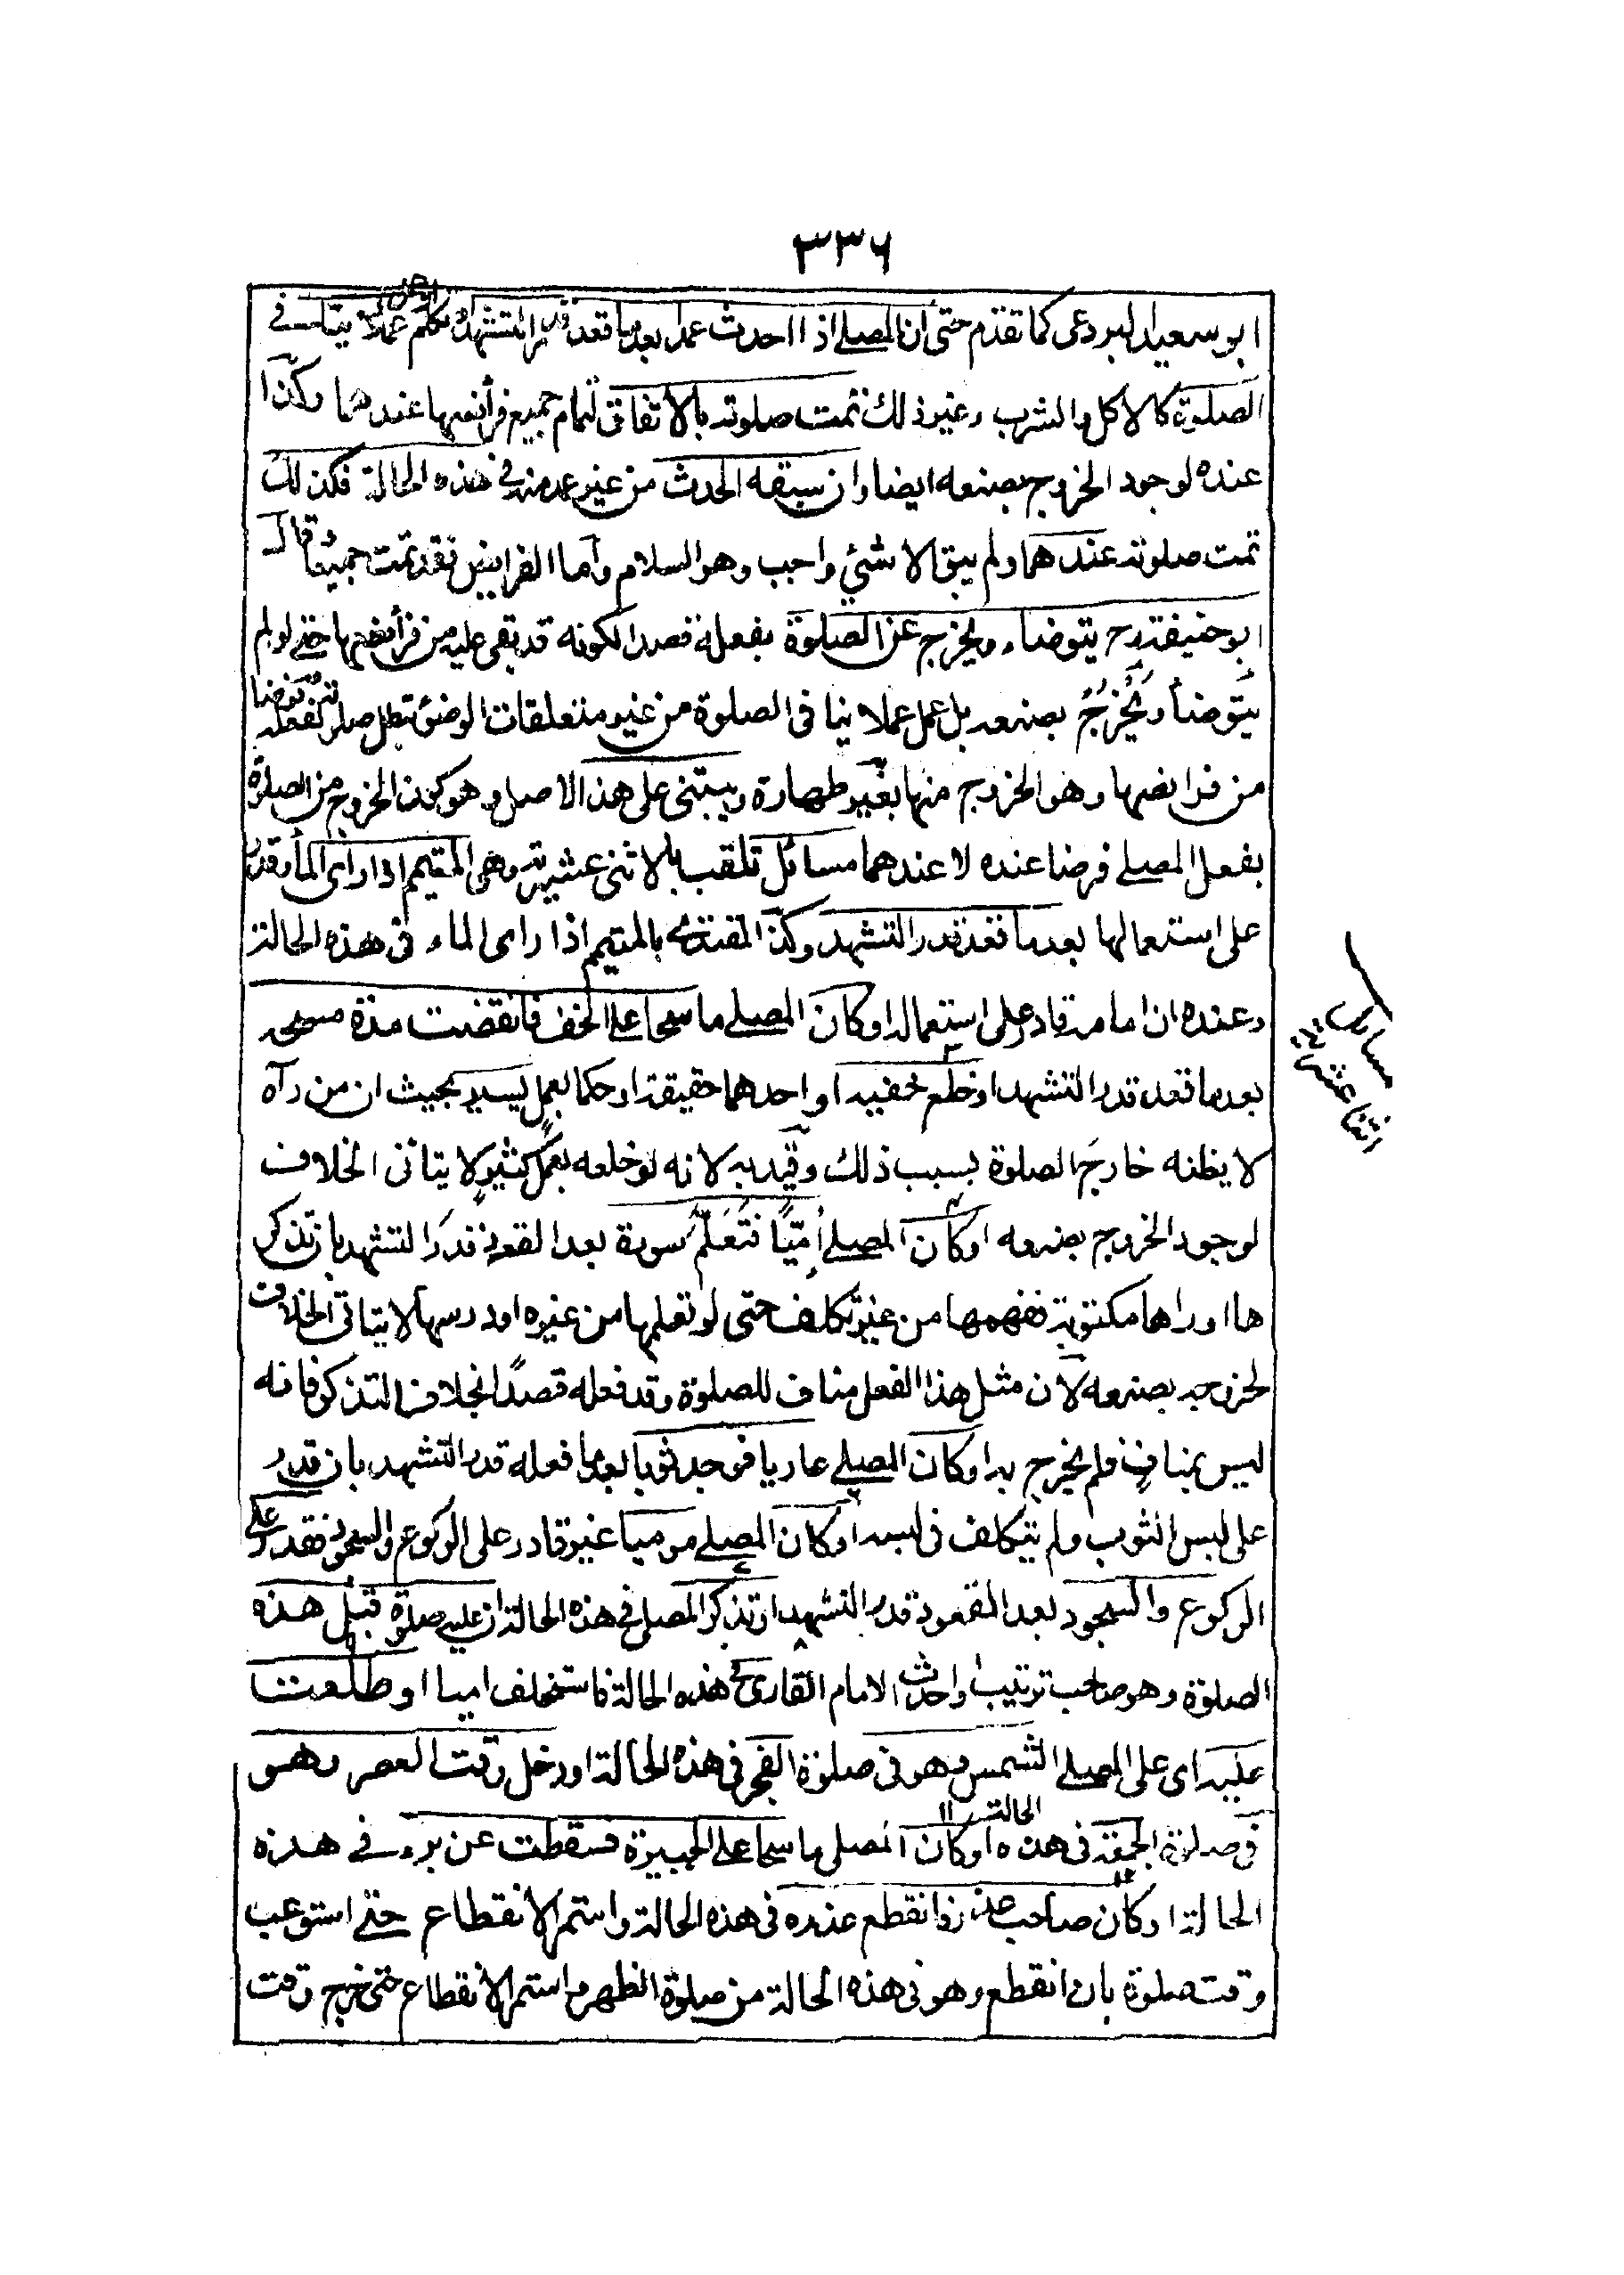 ٣٣٦
ابو سعيد البردعى كما تقدم حتى ان المصلى اذا احدث عمدا بعدما قعد قدر التشهد او تكلم او عمل عملا ينافى
الصلوة كالاكل والشرب وغير ذلك تمت صلوته بالاتفاق لتمام جميع فرائضها عندهما وكذا
عنده لوجود الخروج بصنعه ايضا وان سبقه الحدث من غير عمد منه فى هذه الحالة فكذلك
تمت صلوته عندهما ولم يبق الا شئ واجب وهو السلام واما الفرايض فقد تمت جميعا وقال
ابو حنيفة رح يتوضاء ويخرج عن الصلوة بفعله قصدا لكونه قد بقى عليه من فرائضها حتى لو لم
يتوضأ ويخرج بصنعه بل عمل عملا ينافى الصلوة من غير متعلقات الوضوء تبطل صلوته لفعله
من فرايضها وهو الخروج منها بغير طهارة ويبتنى على هذا الاصل وهو كون الخروج من الصلوة
بفعل المصلى فرضا عنده لا عندهما مسائل تلقب بالاثنى عشرية وهى المتيمم اذا راى الماء وقدر
على استعمالها بعدما قعد قدر التشهد وكذا المقتدى بالمتيمم اذا راى الماء فى هذه الحالة
وعنده ان امامه قادر على استعماله او كان المصلى ماسحا على الخف فانقضت مدة مسحه
بعدما قعد قدر التشهد او خلع خفيه او احدهما حقيقة او حكما بعمل يسير بحيث ان من رآه
لا يظنه خارج الصلوة بسبب ذلك وقيد به لانه لو خلعه بعمل كثير لا يتاتى الخلاف
لوجود الخروج بصنعه او كان المصلى أميّا فتعلّم سورة بعد القعود قدر التشهد بان تذكر
ها او راها مكتوبة ففهمها من غير تكلف حتى لو تعلمها من غيره او درسها لا يتاتى الخلاف
لخروجه بصنعه لان مثل هذا الفعل مناف للصلوة وقد فعله قصدًا بخلاف التذكر فانه
ليس بمناف فلم يخرج به او كان المصلى عاريا فوجد ثوبا بعدما فعله قدر التشهد بان قدر
على لبس الثوب ولم يتكلف فى لبسه او كان المصلى موميا غير قادر على الركوع والسجود فقدر على
الركوع والسجود بعد القعود قدر التشهد او تذكر المصلى فى هذه الحالة ان عليه صلوة قبل هذه
الصلوة وهو صاحب ترتيب او احدث الامام القارى فى هذه الحالة فاستخلف اميا او طلعت
عليه اى على المصلى الشمس وهو فى صلوة الفجر فى هذه الحالة او دخل وقت العصر وهو
فى صلوة الجمعة فى هذه الحالة او كان المصلى ماسحا على الجبيرة فسقطت عن برء فى هذه
الحالة او كان صاحب عذر فانقطع عذره فى هذه الحالة واستمر الانقطاع حتى استوعب
وقت صلوة بان انقطع وهو فى هذه الحالة من صلوة الظهر واستمر الانقطاع حتى خرج وقت
مسائل
اثنا عشرية